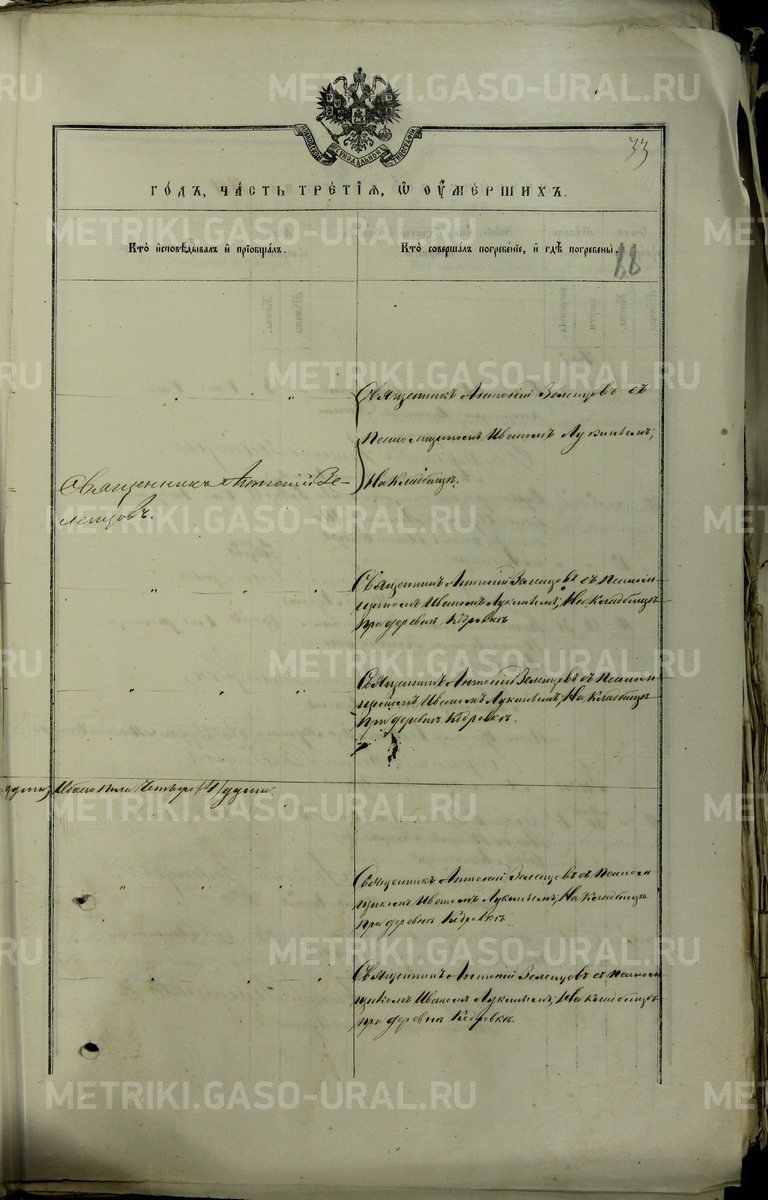 33
ГО́ДЪ, ЧА́СТЬ ТРЕ́ТІЯ, Ѿ ОУМЕ́РШИХЪ.
Кто̀ и҆сповѣ́дывалъ и҆ прїобща́лъ.
Кто̀ соверша́лъ погребе́нїе, и҆ гдѣ̀ погребены̀.
88
Священникъ Антоній Зеленцовъ съ
Псаломщикомъ Иваномъ Лукинымъ;
На Кладбищѣ.
Священникъ Антоній Зе-
ленцовъ.
Священникъ Антоній Зеленцовъ съ Псалом-
щикомъ Иваномъ Лукинымъ; На Кладбищѣ
при деревнѣ Кедровкѣ
Священникъ Антоній Зеленцовъ съ Псалом-
щикомъ Иваномъ Лукинымъ; На Кладбищѣ
При деревнѣ Кедровкѣ.
Четыре /4/ души.
Священникъ Антоній Зеленцовъ съ Псалом-
щикомъ Иваномъ Лукинымъ; На Кладбищѣ
при деревнѣ Кедровкѣ.
Священникъ Антоній Зеленцовъ съ Псалом-
щикомъ Иваномъ Лукинымъ; На Кладбищѣ
при деревнѣ Кедровкѣ.
METRIKI.GASO-URAL.RU